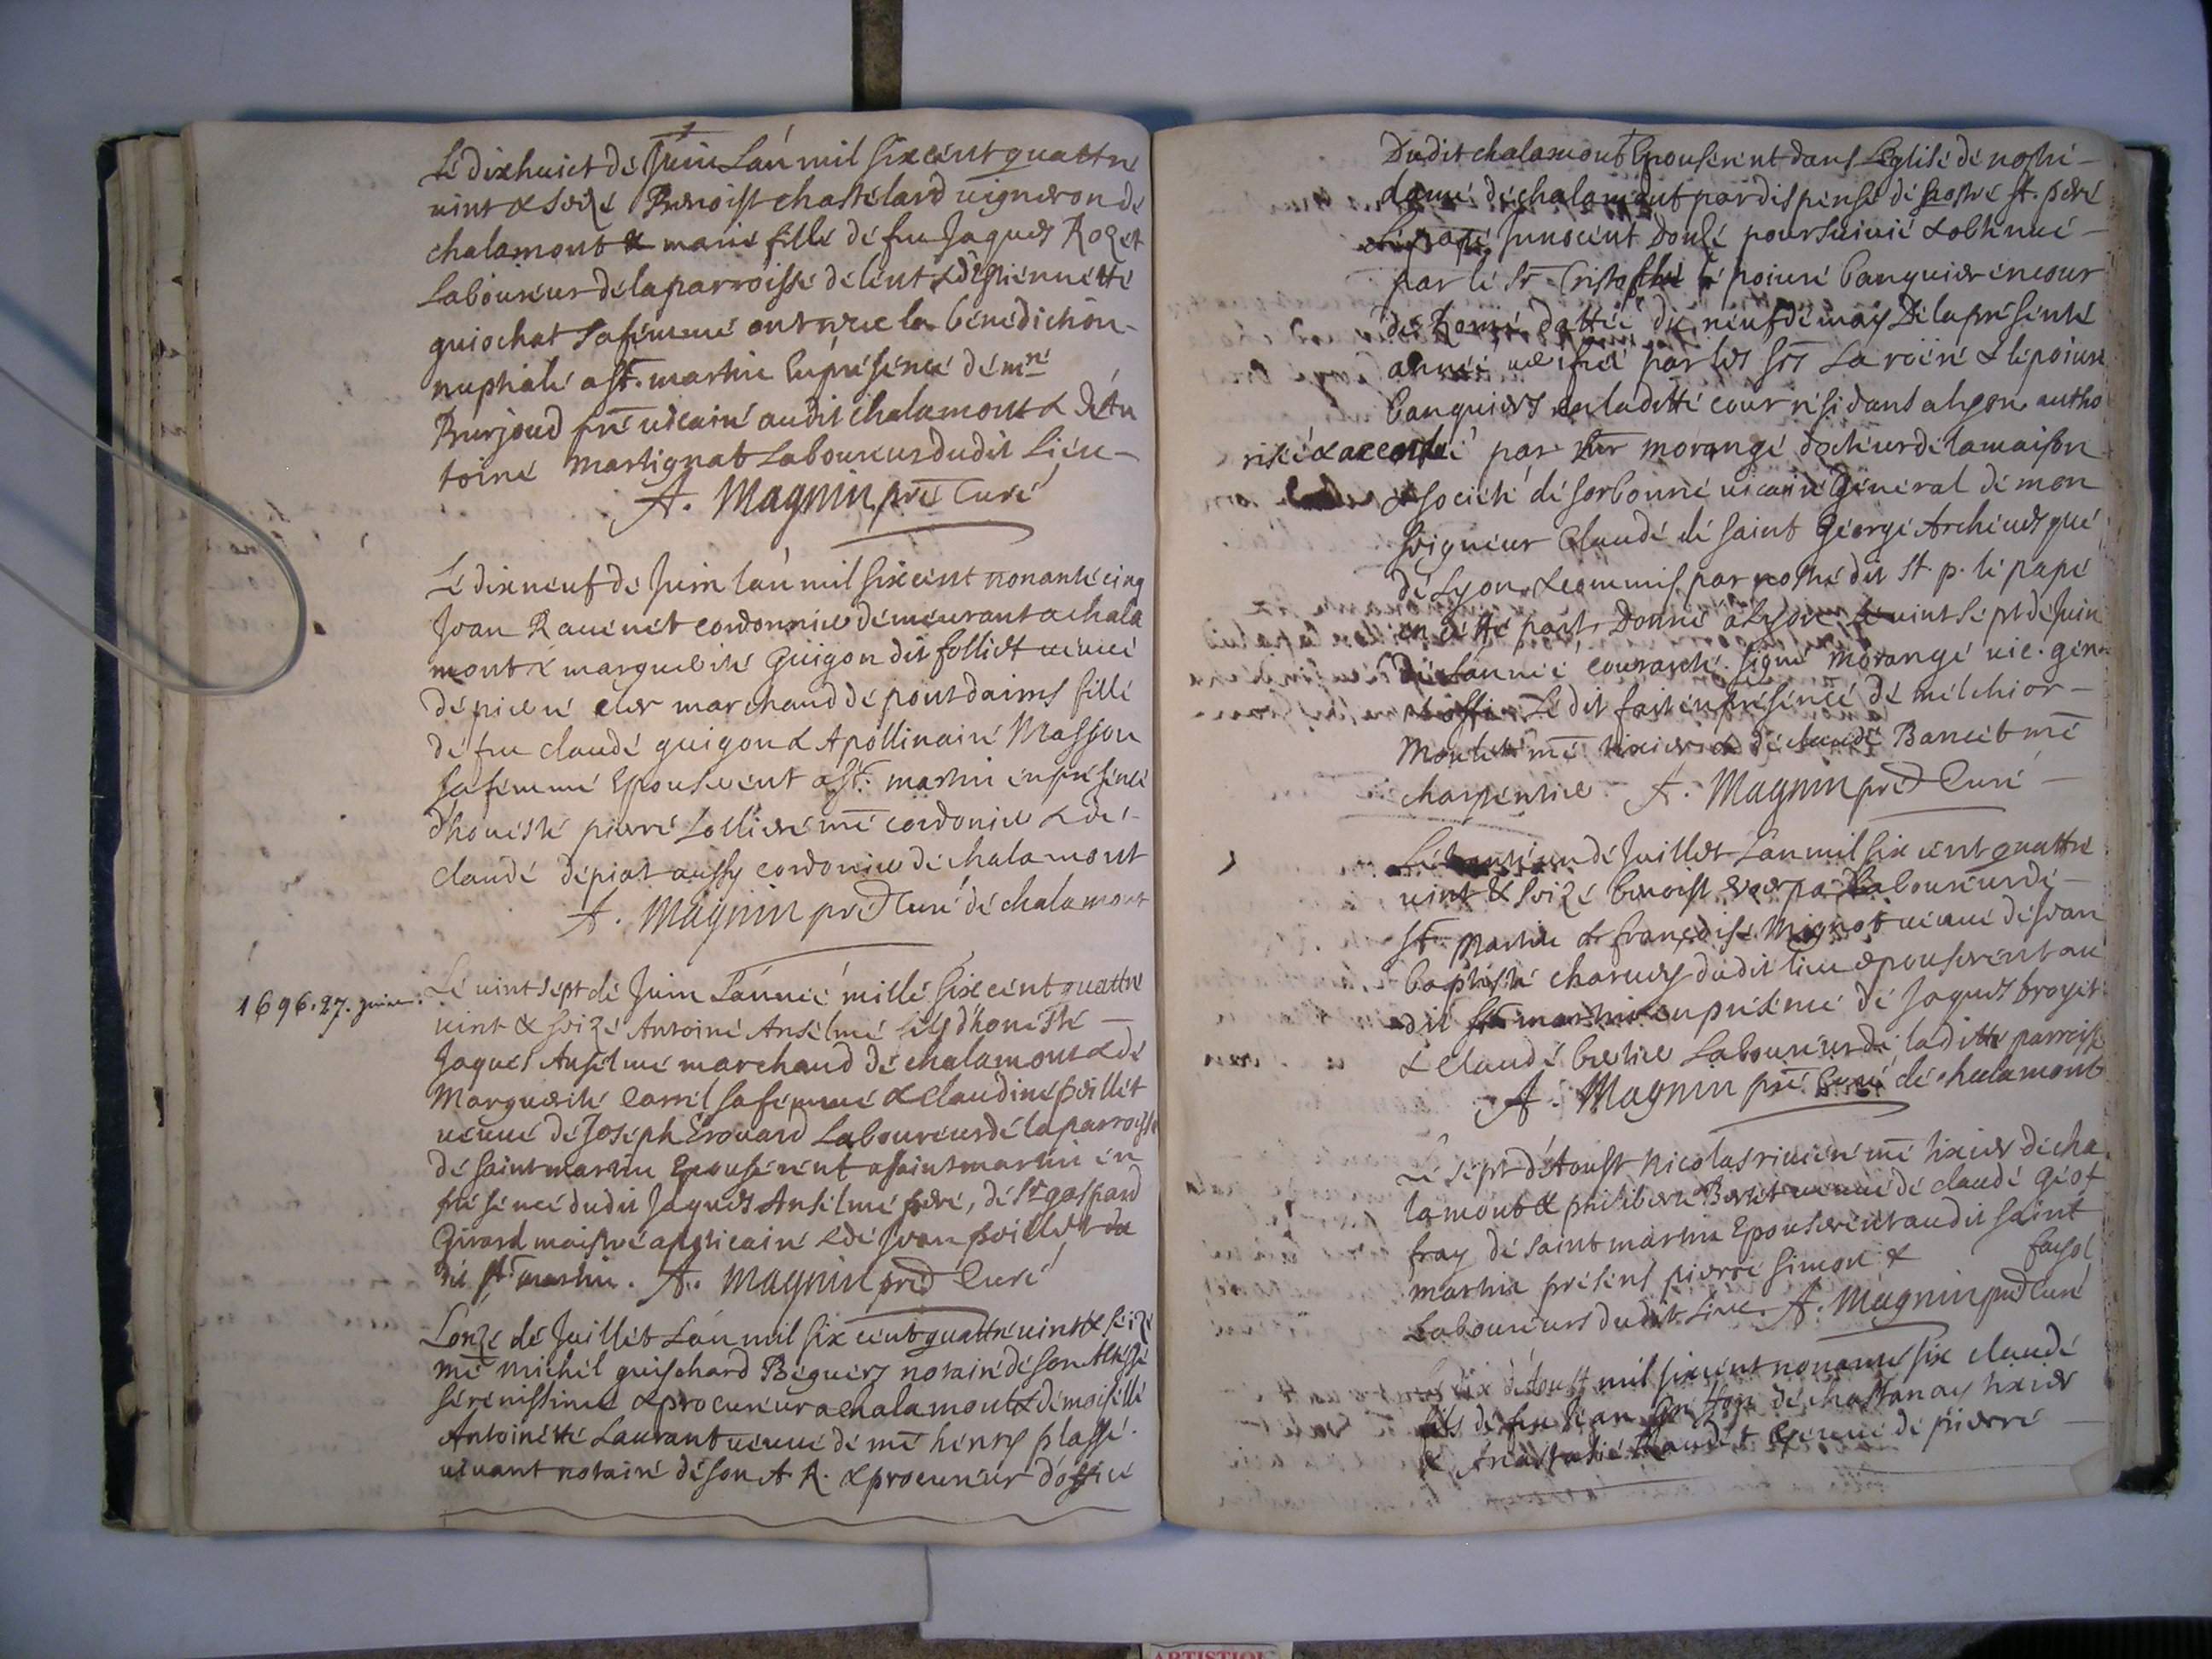 Lé dixhuict dé Juin L'an mil six cent quattre
vint & seizé Benoist chastelard vigneron dé
chalamont & marie fille dé feu Jaques Rozet
Laboureur dela parroisse dé lent & d'Estiennetté
guiochat sa femmé ont receu la bénédiction
nuptialé a St. martin en présencé dé mre
Burjoud pre vicairé audit chalamont & d'An
toiné Martignat Laboureur dudit Lieu
A. Magnin pre Curé
Lé dixneuf dé Juin l'an mil six cent nonante cinq
Jean Ravenet cordonnier demeurant a chala
mont & margueritè Guigon dit folliet veuvé
dé pierré marchand dé pont daims fillé
dé feu claudé guigon & Apollinairé Masson
sa femmé Epouserent a St. martin en présencé
d'honesté pierré Lollieré mé cordonier & dé
claudé dépiat aussy cordonier dé chalamont
A. Magnin pre Curé dé chalamont
1696. 27. Juin.
Lé vint sept dé Juin L'anneé millé six cent quattre
vint & seizé Antoiné Anselmé fils d'honesté
Jaques Anselmé marchand dé chalamont & dé
Margueritè Carrel sa femmé & Claudiné poillet
veuvé dé Joseph Erouard Laboureur dé la parroisse
dé saint martin Epouserent a saint martin en
présencé dudit Jaques Anselmé peré, dé Sr gaspard
Girard maistré apoticairé & dé Jean poillet du
dit St martin. A. Magnin pre Curé
L'onze dé Juillet L'an mil six cent quattre vint & seizé
mé Michel guischard Béguers notairé dé son Altesse
sérénissime & procureur a chalamont & démoisellé
Antoinetté Laurant veuvé dé mé henry plassé
vivant notairé dé son A. R. & procureur d'officé
Dudit chalamont Epouserent dans L'eglisé dé nostré
damé dé chalamont par dispensé dé nostré st. peré
Lé papé Innocent Douzé poursuivié & obtenué
par lé Sr Cristophlé lé poivré banquier en cour
dé Romé dattéé du neuf dé may Dé la présenté
année verifiéé par les srs La roeré & lé poivré
banquiers en laditté cour résidants a lyon autho
risée & accordéé par Mr morangé docteur dé la maison
& société dé sorbonné vicairé Général dé mon
seigneur Claudé dé saint Georgé Archevesqué
dé Lyon & commis par nostré dit St. p. lé papé
en cetté part, Donné a Lyon lé vint sépt dé Juin
dé L'anneé couranté. signé Morangé vic. gén.
Lé dit fait en présencé dé melchior
mé tixier & dé claudé Banet mé
charpentier A. Magnin pre Curé
Lé trente un dé Juillet L'an mil six cent quattre
vint & seizé benoist Laboureur dé
St. Martin & françoisé Mignot veuvé dé Jean
baptisté charvey dudit lieu epouserent au
dit St martin en présencé dé Jaques broyer
& Claudé bertier Laboureurs dé laditté parroisse
A. Magnin pre Curé dé chalamont
Lé sept d'Aoust Nicolas rivieré mé tixier dé cha
lamont & philiberté Berlet veuvé dé claudé Geof
fray dé saint martin Epouserent audit saint
martin présens pierré Simon & fayol
Laboureurs dudit Lieu. A. Magnin pre Curé
Lé dix d'Aoust mil six cent nonanté six claudé
fils dé feu Jean dé chastenay tixier
& Anastasié veuvé dé pierré
ARTISTIQUE